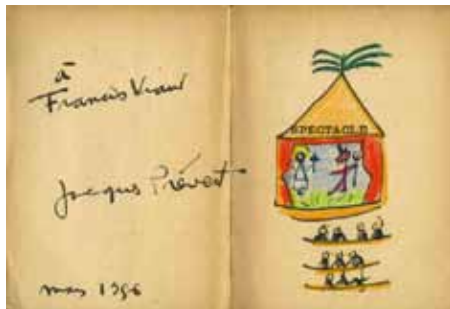 à
Francis
Jacques Prévert
mars
SPECTACLE